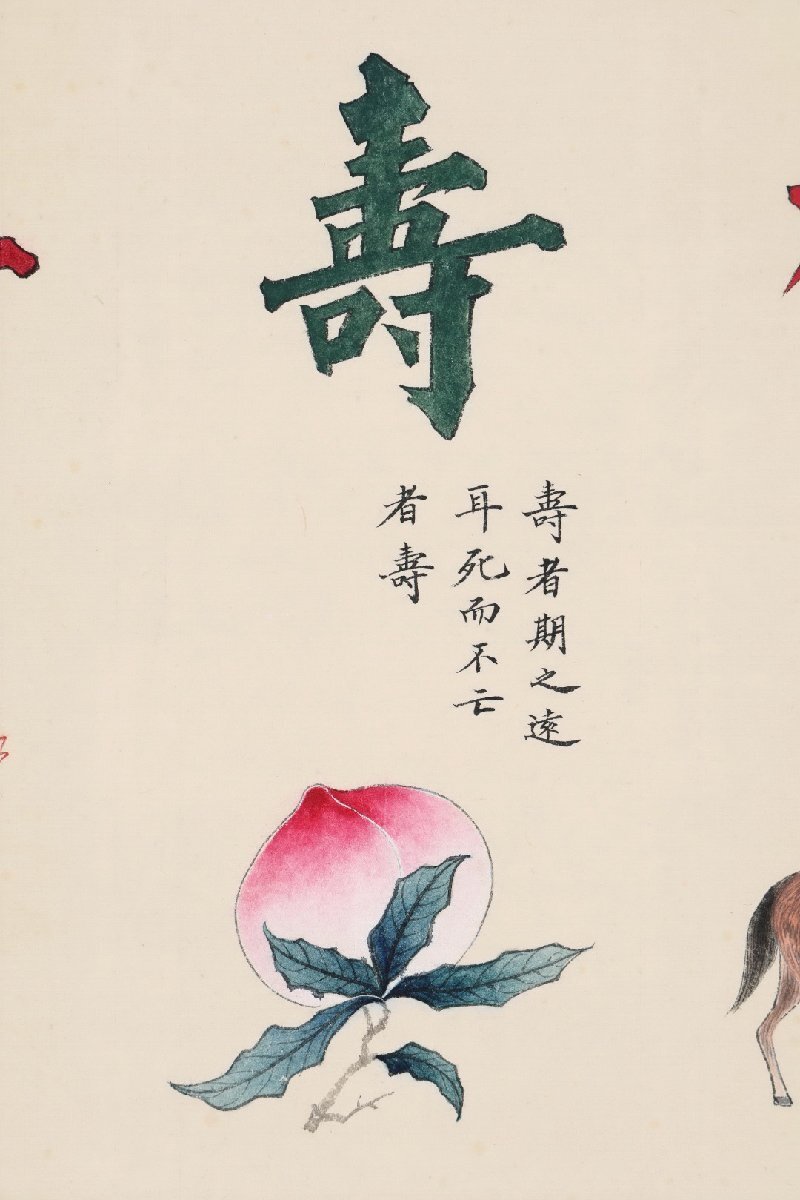 壽
壽者期之遠
耳死而不亡
者壽